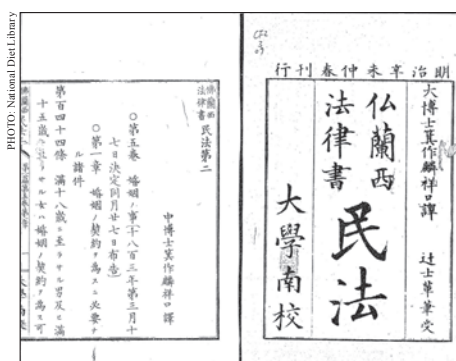 PHOTO: National Diet Library
明治辛未仲春刊行
大博士箕作麟祥口譯 辻士革筆受
仏蘭西
法律書
民法
大學南校
佛蘭西
法律書
民法第二
中博士箕作麟祥口譯
○第五巻 婚姻ノ事(千八百三年第三月十
七日決定同月廿七日布告)
○第一章 婚姻ノ契約ヲ為スニ必要ナ
ル諸件
第百四十四條 満十八歳ニ至ラサル男及ヒ満
十五歳ニ至ラサル女ハ婚姻ノ契約ヲ為ス可